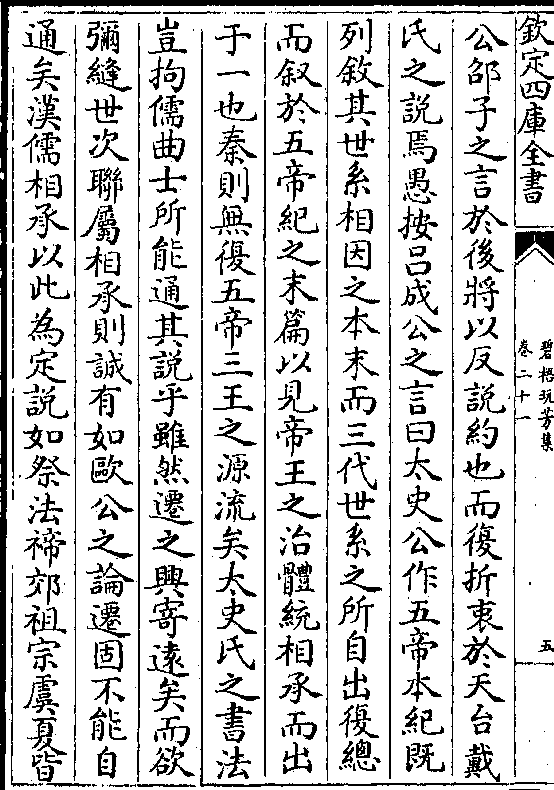 欽定四庫全書
碧梧玩芳集
卷二十一
五
公邵子之言於後將以反説約也而復折衷於天台戴
氏之説焉愚按吕成公之言曰太史公作五帝本紀既
列敘其世系相因之本末而三代世系之所自出復總
而叙於五帝紀之末篇以見帝王之治體統相承而出
于一也秦則無復五帝三王之源流矣太史氏之書法
豈拘儒曲士所能通其説乎雖然遷之興寄逺矣而欲
彌縫世次聯屬相承則誠有如歐公之論遷固不能自
通矣漢儒相承以此為定説如祭法禘郊祖宗虞夏皆